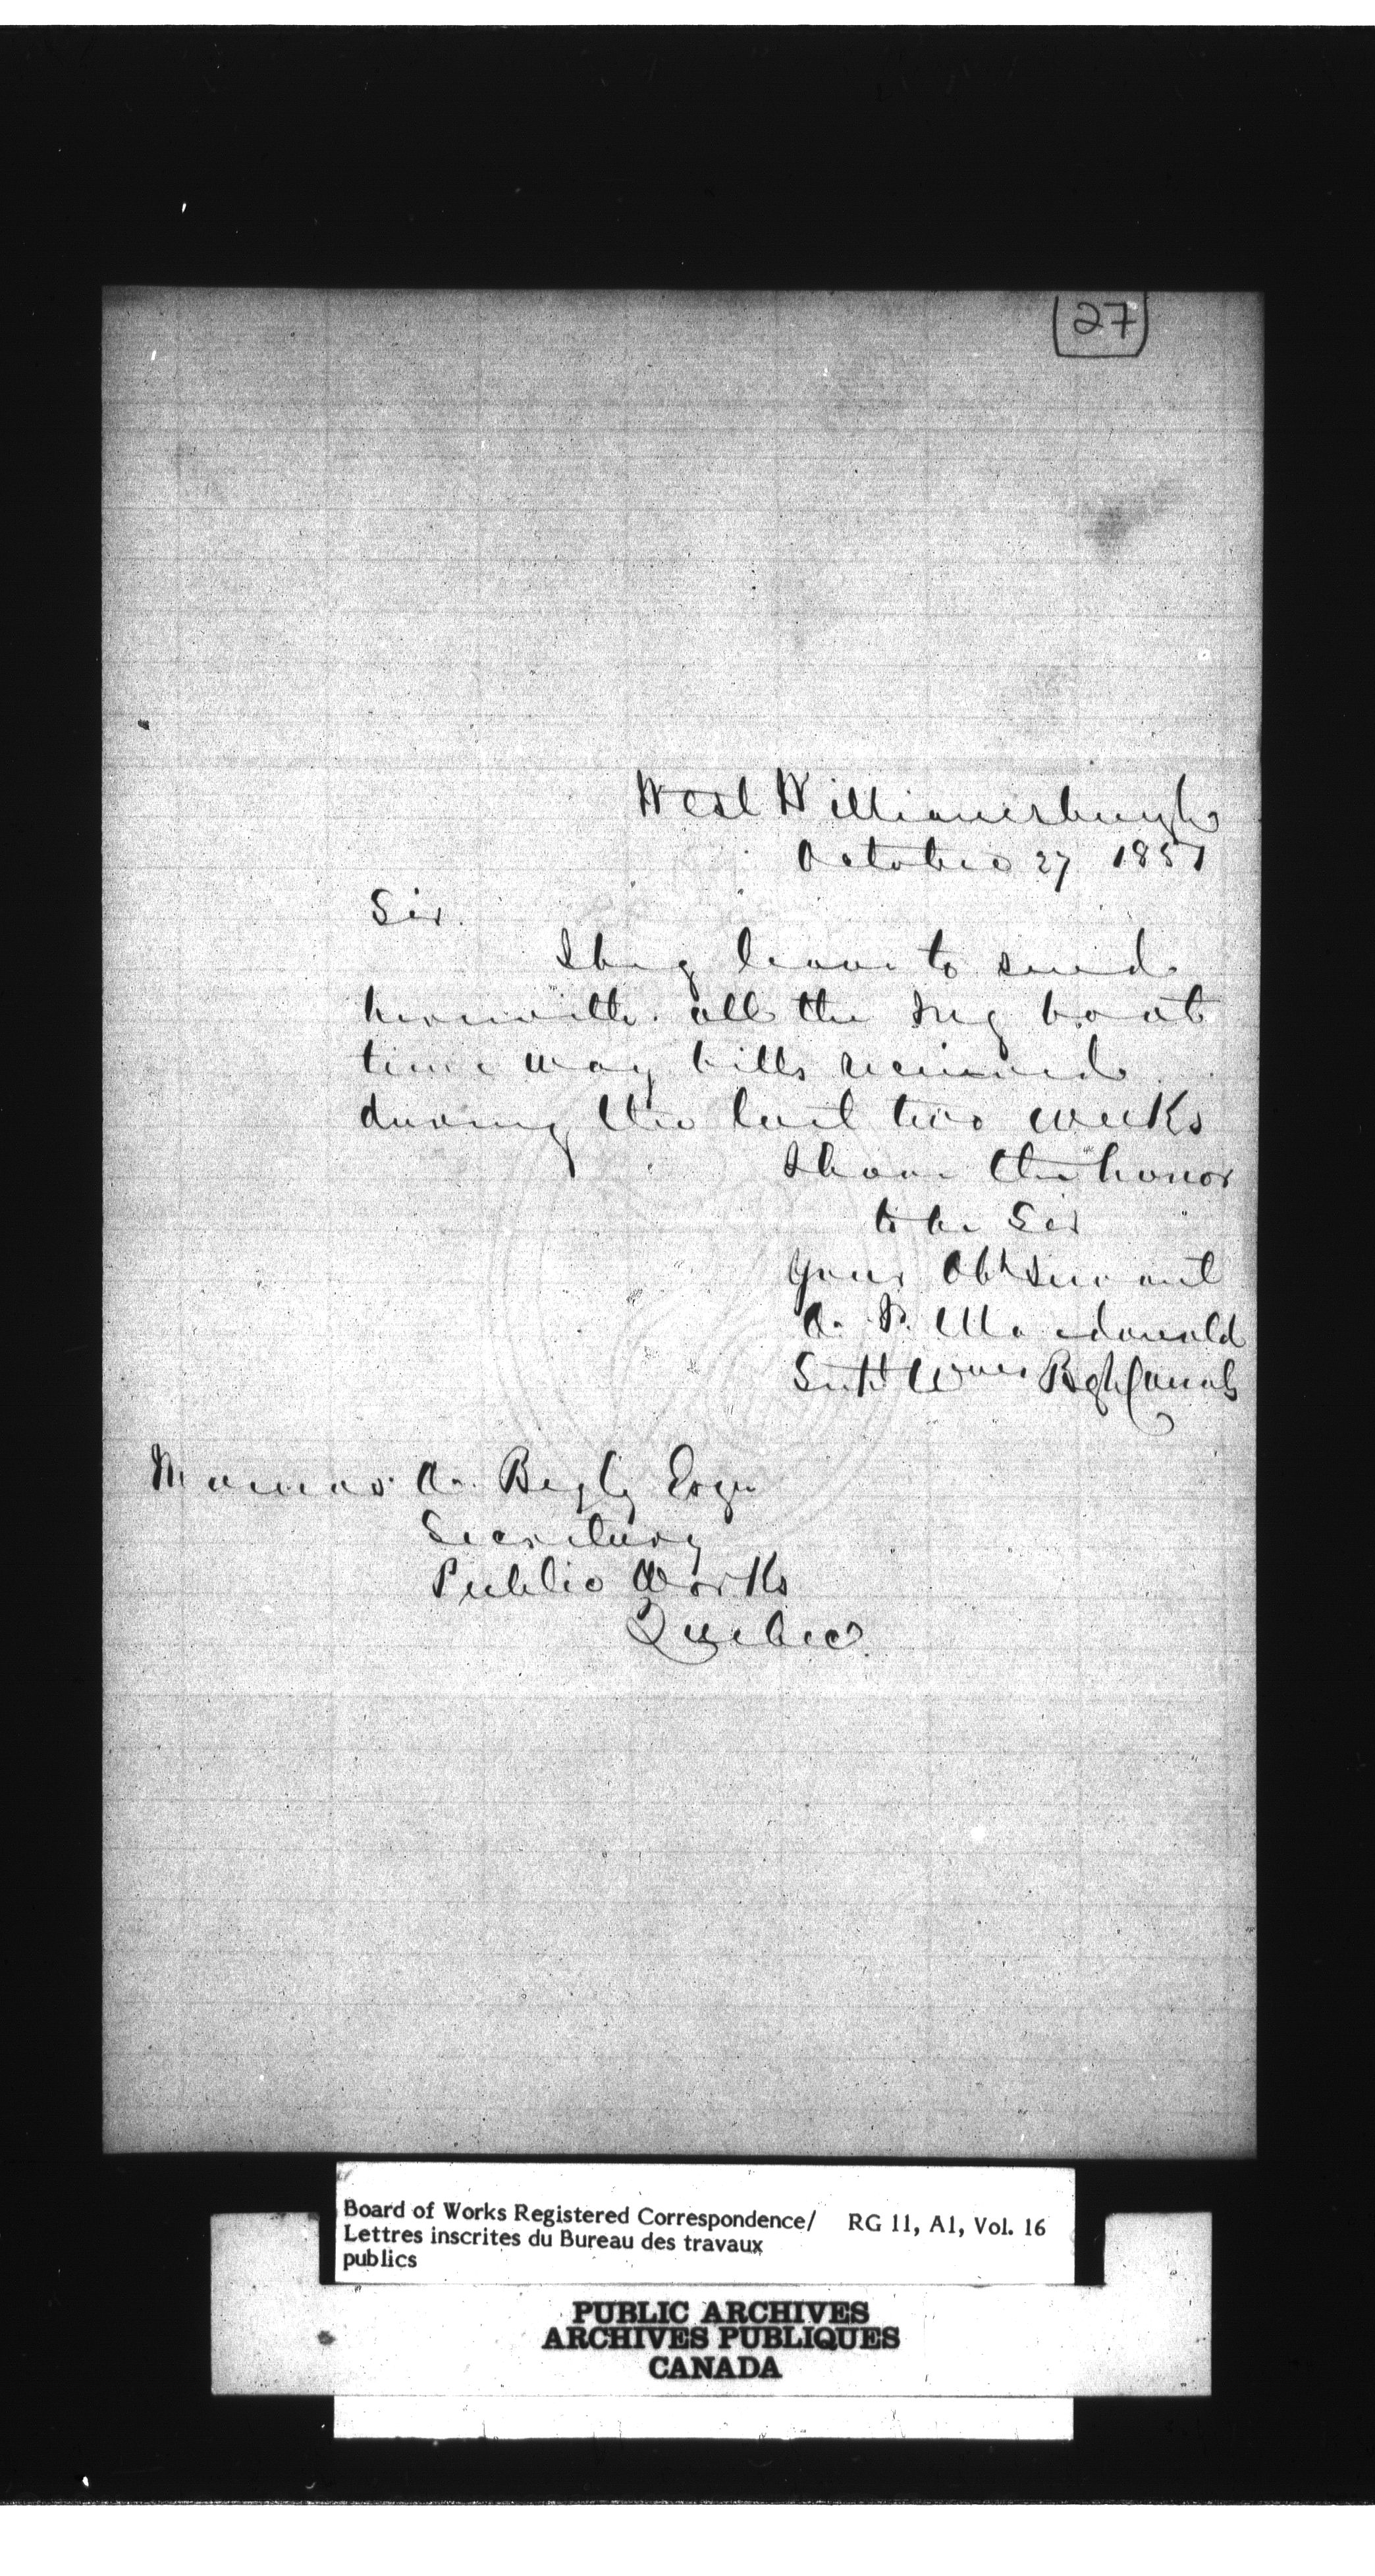 27
West Williamsburgh
October 27 1851
Sir.
I beg leave to send
herewith all the Tug boat
time way bills received
during the last two weeks
I have the honor
to be Sir
Your Obt Servant
A. P. Macdonald
Supt Wms Bgh Canals
Thomas A. Begly Esqr
Secretary
Public Works
Quebec
Board of Works Registered Correspondence/ RG 11, A1, Vol. 16
Lettres inscrites du Bureau des travaux
publics
PUBLIC ARCHIVES
ARCHIVES PUBLIQUES
CANADA